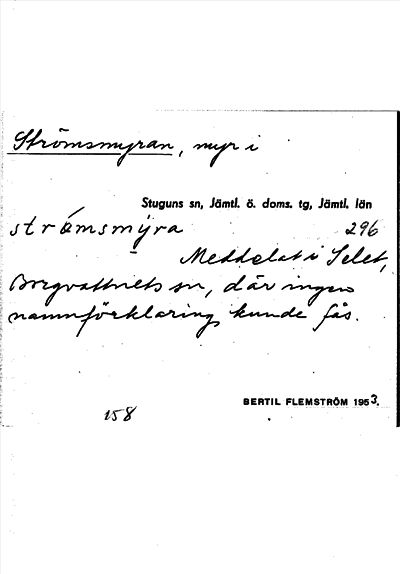 Strömsmyran, myr i
Stuguns sn, Jämtl. ö. doms. tg, Jämtl. län
strǿmsmy̱ra 296
Meddelat i Selet,
Borgvattnets sn, där ingen
namnförklaring kunde fås.
BERTIL FLEMSTRÖM 1953.
158